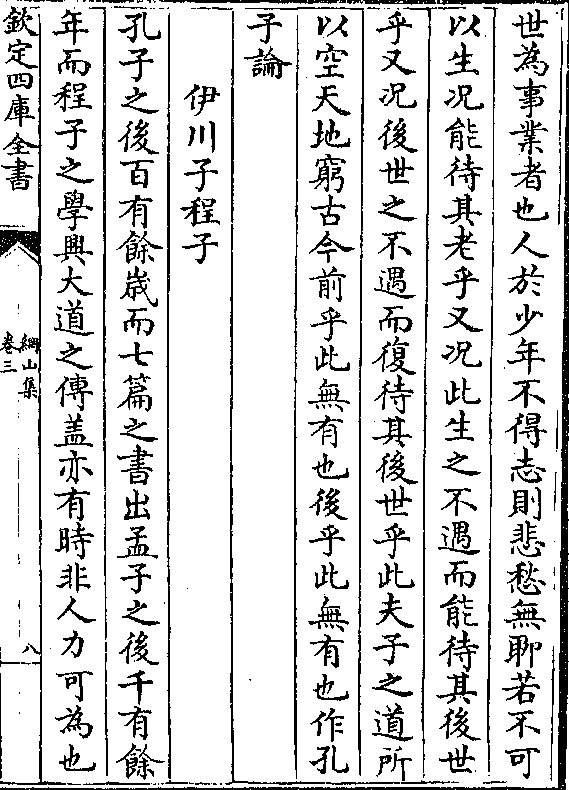 世為事業者也人於少年不得志則悲愁無聊若不可
以生况能待其老乎又况此生之不遇而能待其後世
乎又况後世之不遇而復待其後世乎此夫子之道所
以空天地窮古今前乎此無有也後乎此無有也作孔
子論
伊川子程子
孔子之後百有餘歳而七篇之書出孟子之後千有餘
年而程子之學興大道之傳盖亦有時非人力可為也
欽定四庫全書
綱山集
卷三
八